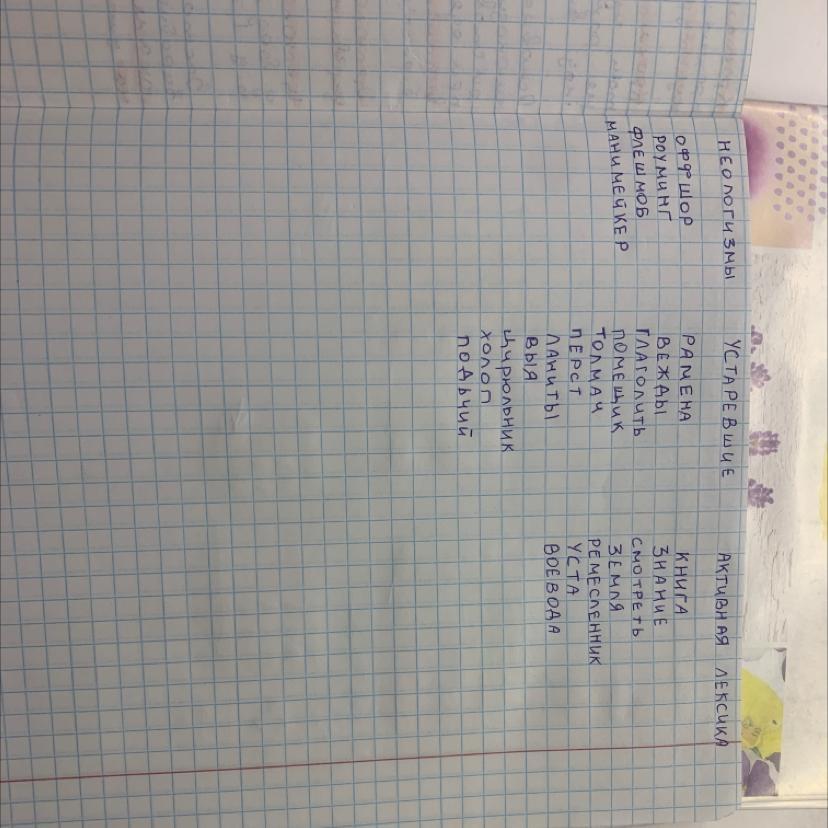 НЕОЛОГИЗМЫ
ОФФШОР
РОУМИНГ
ФЛЕШМОБ
МАНИМЕЙКЕР
УСТАРЕВШИЕ
РАМЕНА
ВЕЖДЫ
ГЛАГОЛИТЬ
ПОМЕЩИК
ТОЛМАЧ
ПЕРСТ
ЛАНИТЫ
ВЫЯ
ЦИРЮЛЬНИК
ХОЛОП
ПОДЬЧИЙ
АКТИВНАЯ ЛЕКСИКА
КНИГА
ЗНАНИЕ
СМОТРЕТЬ
ЗЕМЛЯ
РЕМЕСЛЕННИК
УСТА
ВОЕВОДА